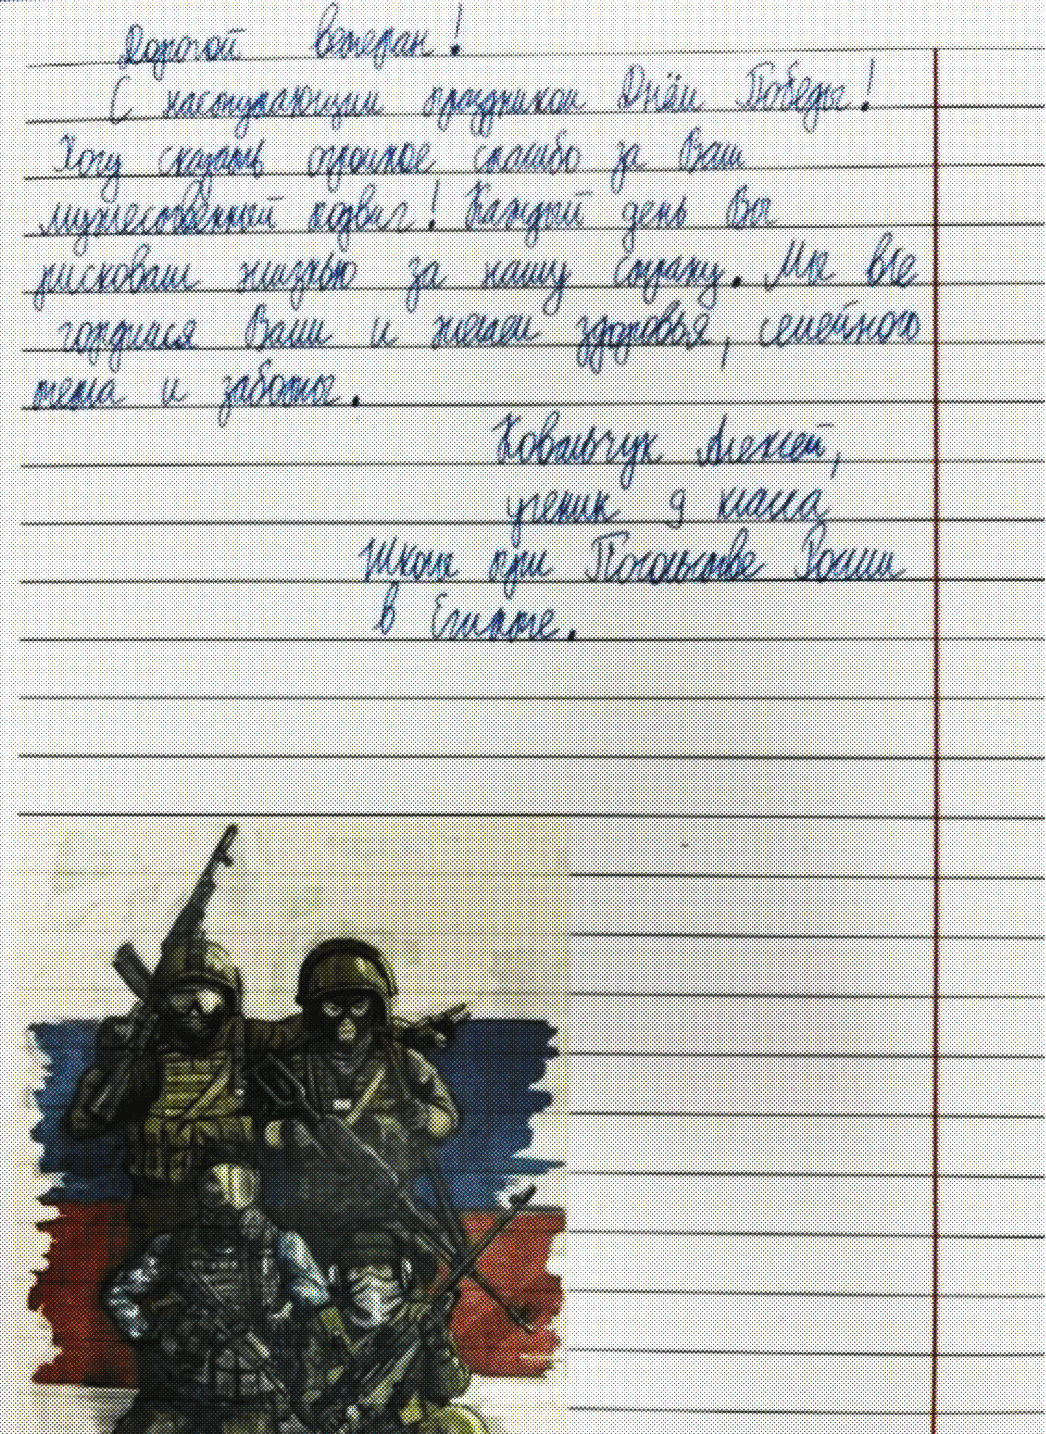 Дорогой ветеран!
С наступающим праздником Днём Победы!
Хочу сказать огромное спасибо за Ваш
мужественный подвиг! Каждый день Вы
рисковали жизнью за нашу страну. Мы все
гордимся Вами и желаем здоровья, семейного
тепла и заботы.
Ковальчук Алексей,
ученик 9 класса
Школа при Посольстве России
в Египте.